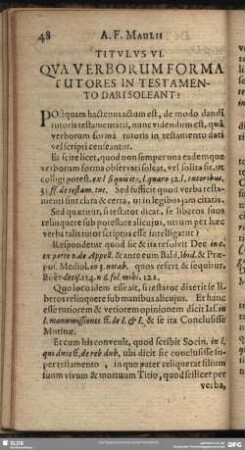 48 A. F. MAULII
TITVLVS VI.
QVA VERBORUM FORMA
TUTORES IN TESTAMEN-
TO DARI SOLEANT?
POstquam hactenus actum est, de modo dandi
tutoris testamentarii, nunc videndum est, quâ
verborum formâ tutoris in testamento dati
vel scripti censeantur.
Et scire licet, quod non semper una eademque
verborum forma observari soleat, vel solita sit, ut
colligi potest, ex l. si quis 32. l. tutoribus.
31. ff. de testam. tut. Sed sufficit quod verba testa-
menti sint clara & certa, ut in legibus jam citatis.
Sed quæritur, si testator dicat, se liberos suos
relinquere sub potestate alicujus, utrum per hæc
verba talis tutor scriptus esse intelligatur?
Respondetur quod sic & ita resolvit Dec in c.
ex parte 2. de Appell. & ante eum Bald, ibid. & Præ-
pos. Mediol. in 3. notab. quos refert & sequitur.
Quo loco idem esse ait, si testator dixerit se li-
beros relinquere sub manibus alicujus. Et hanc
esse tutiorem & veriorem opinionem dicit Ias. in
l. manumissiones ff. de I. & I. & se ita Conclusisse
Mutinæ.
Et cum his convenit, quod scribit Socin, in l.
qui duos ff. de reb. dub, ubi dicit sic conclusisse su-
per testamento, in quo pater reliquerat filium
suum vivum & mortuum Titio, quod scilicet per
verba,
SLUB